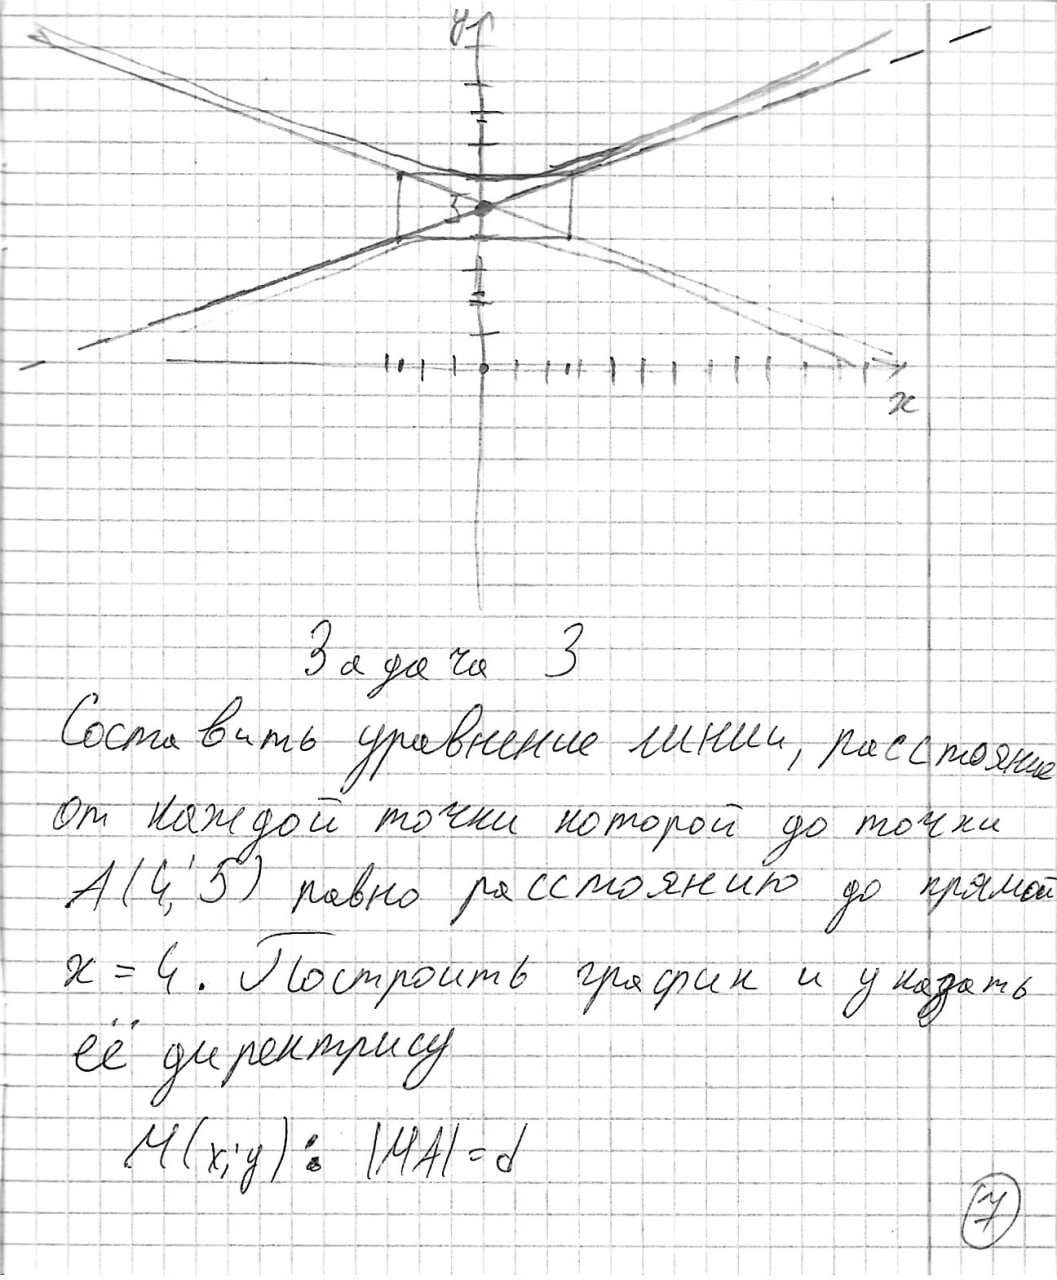 y
3
x
Задача 3
Составить уравнение линии, расстояние
от каждой точки которой до точки
A(4; 5) равно расстоянию до прямой
x = 4. Построить график и указать
её директрису
M(x; y): |MA| = d
7